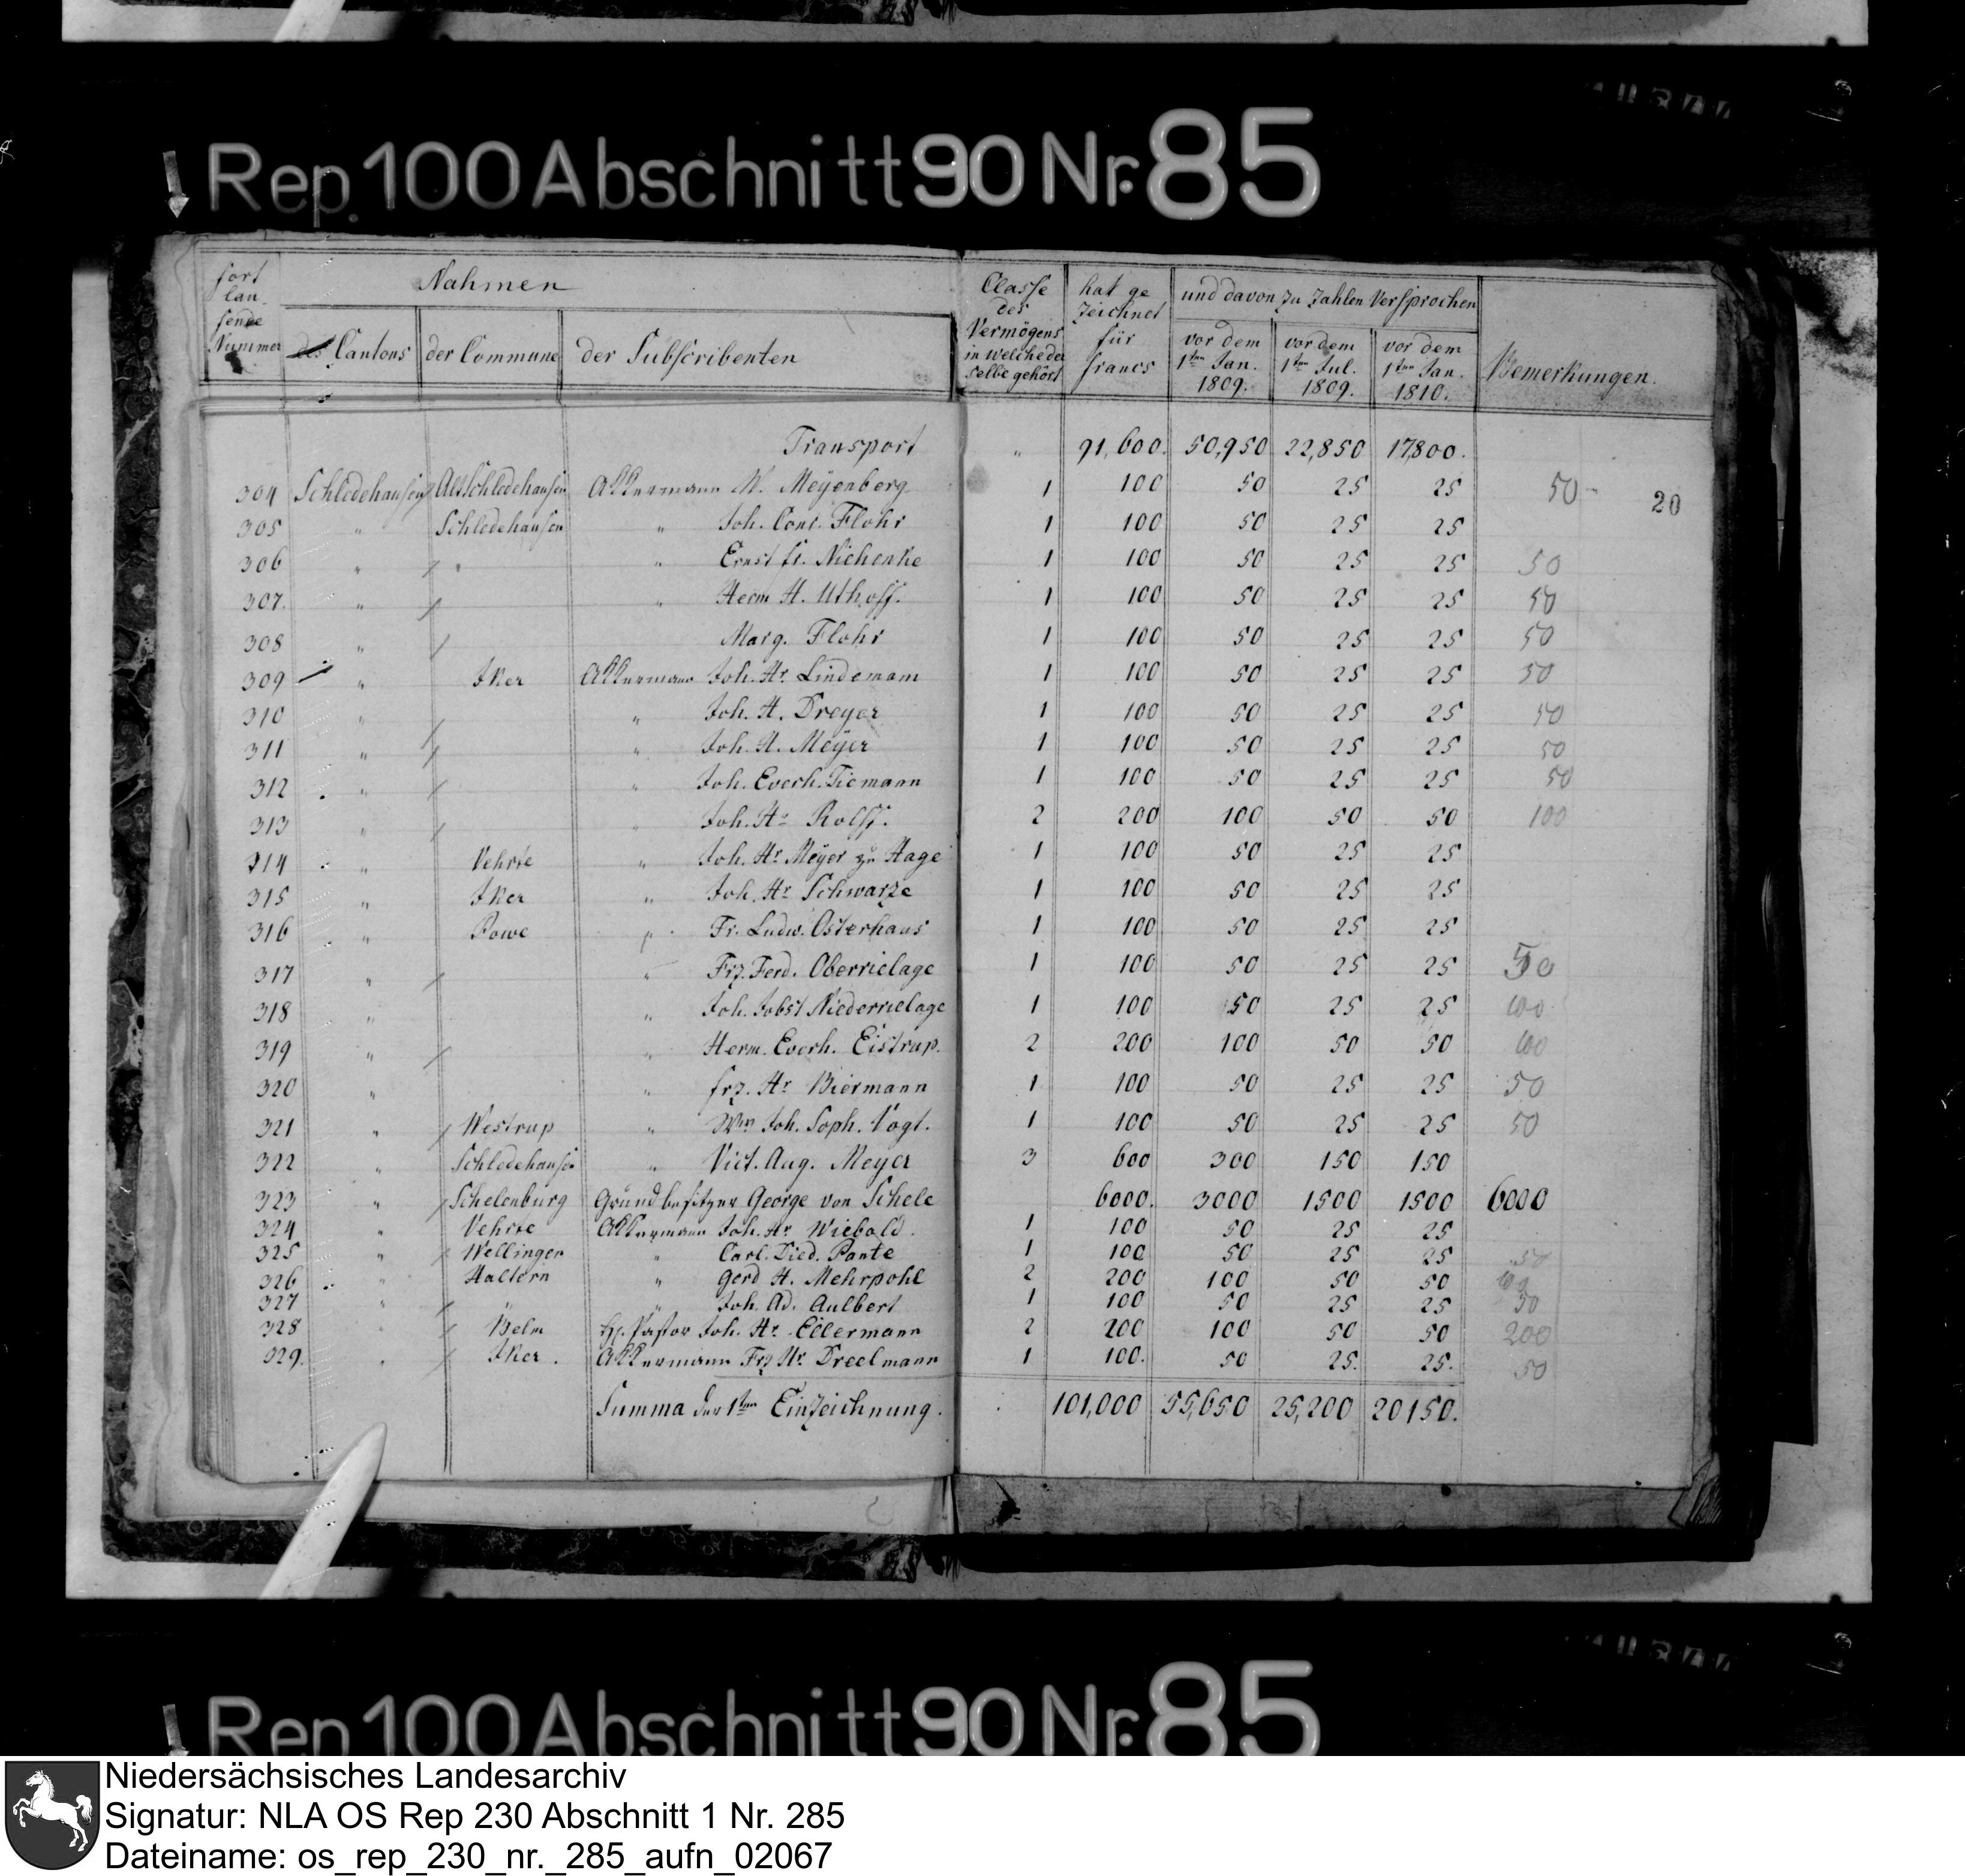 Rep. 100 Abschnitt 90 Nr. 85
fort Nahmen Classe hat ge und davon zu Zahlen Versprochen
lau- des zeichnet
fende Vermögens für vor dem vor dem vor dem
Nummer des Cantons der Commune der Subscribenten in welche der francs 1ten Jan. 1ten Jul. 1ten Jan. Bemerkungen.
selbe gehört 1809. 1809. 1810.
Transport " 91,600. 50,950 22,850 17,800.
304 Schledehausen Altschledehausen Akkermann W. Meyenberg 1 100 50 25 25 50 20
305 " Schledehausen " Joh. Conr. Flohr 1 100 50 25 25
306 " " " Ernst Fr. Nichenke 1 100 50 25 25 50
307. " " Herm H. Uthoff. 1 100 50 25 25 50
308 " Marg. Flohr 1 100 50 25 25 50
309 " Iker Akkermann Joh. Hr. Lindemann 1 100 50 25 25 50
310 " " Joh. H. Dreyer 1 100 50 25 25 50
311 " " Joh. H. Meÿer 1 100 50 25 25 50
312 " " Joh. Everh. Tiemann 1 100 50 25 25 50
313 " " Joh. Hr. Rolff. 2 200 100 50 50 100
314 " Vehrte " Joh. Hr. Meÿer zu Hage 1 100 50 25 25
315 " Iker " Joh. Hr. Schwarze 1 100 50 25 25
316 " Powe " Fr. Ludw. Osterhaus 1 100 50 25 25
317 " " Frz. Ferd. Oberrielage 1 100 50 25 25 50
318 " " Joh. Jobst Niederrielage 1 100 50 25 25 100
319 " " Herm. Everh. Eistrup. 2 200 100 50 50 100
320 " " frz. Hr. Biermann 1 100 50 25 25 50
321 " Westrup " Wm Joh. Soph. Vogt. 1 100 50 25 25 50
322 " Schledehausen " Vict. Aug. Meyer 3 600 300 150 150
323 " Schelenburg Grundbesitzer George von Schele 6000. 3000 1500 1500 6000
324 " Vehrte Akkermann Joh. Hr. Wiebold. 1 100 50 25 25
325 " Wellingen " Carl. Died. Pante 1 100 50 25 25 50
326 " Haltern " Gerd H. Mehrpohl 2 200 100 50 50 100
327 " " " Joh. Ad. Aulbert 1 100 50 25 25 50
328 " Belm Hr. Pastor Joh. Hr. Ellermann 2 200 100 50 50 200
329. " Iker. Akkermann Frz Hr. Dreelmann 1 100. 50 25. 25. 50
Summa der 1ten Einzeichnung. 101,000 55,650 25,200 20150.
Rep 100 Abschnitt 90 Nr. 85
Niedersächsisches Landesarchiv
Signatur: NLA OS Rep 230 Abschnitt 1 Nr. 285
Dateiname: os_rep_230_nr._285_aufn_02067